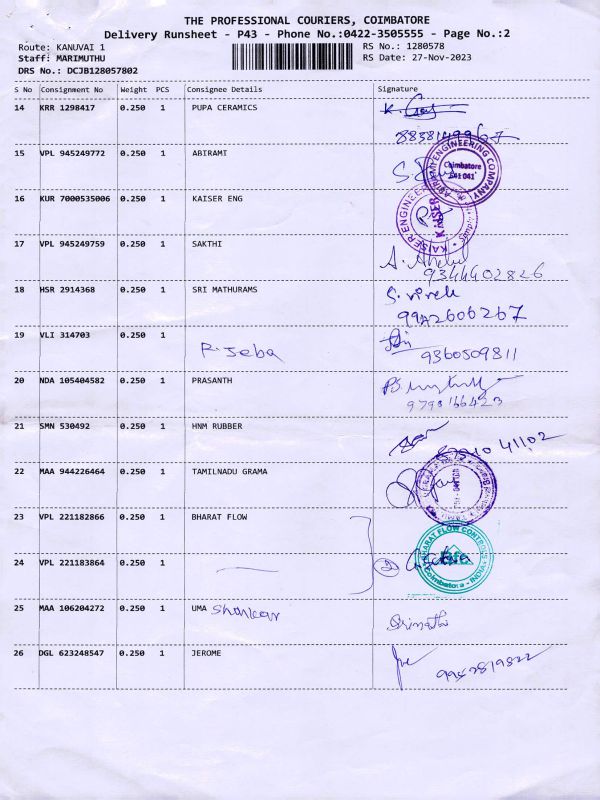 THE PROFESSIONAL COURIERS, COIMBATORE
Delivery Runsheet - P43 - Phone No.:0422-3505555 - Page No.:2
Route: KANUVAI 1 RS No.: 1280578
Staff: MARIMUTHU RS Date: 27-Nov-2023
DRS No.: DCJB128057802
S No Consignment No Weight PCS Consignee Details Signature
14 KRR 1298417 0.250 1 PUPA CERAMICS
15 VPL 945249772 0.250 1 ABIRAMI
ENGINEERING COMPANY
Coimbatore
641 041
16 KUR 7000535006 0.250 1 KAISER ENG
KAISER ENGINEER
KAISER
17 VPL 945249759 0.250 1 SAKTHI
9344402826
18 HSR 2914368 0.250 1 SRI MATHURAMS S. vivek
9942606267
19 VLI 314703 0.250 1 R. Jeba
9360509811
20 NDA 105404582 0.250 1 PRASANTH
9798166423
21 SMN 530492 0.250 1 HNM RUBBER
41102
22 MAA 944226464 0.250 1 TAMILNADU GRAMA
23 VPL 221182866 0.250 1 BHARAT FLOW
BHARAT FLOW CONTROLS
Coimbatore - INDIA
24 VPL 221183864 0.250 1 2
25 MAA 106204272 0.250 1 UMA Shankar Srimathi
26 DGL 623248547 0.250 1 JEROME
9942819822